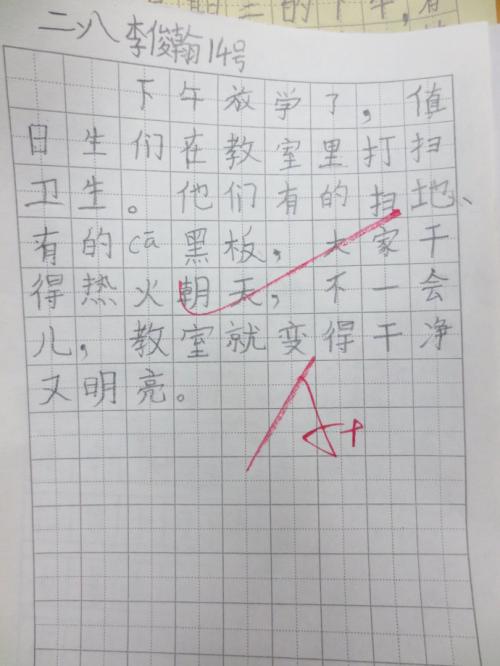 二、八 李俊翰14号
下午放学了，值
日生们在教室里打扫
卫生。他们有的扫地、
有的cā黑板，大家干
得热火朝天，不一会
儿，教室就变得干净
又明亮。
A+